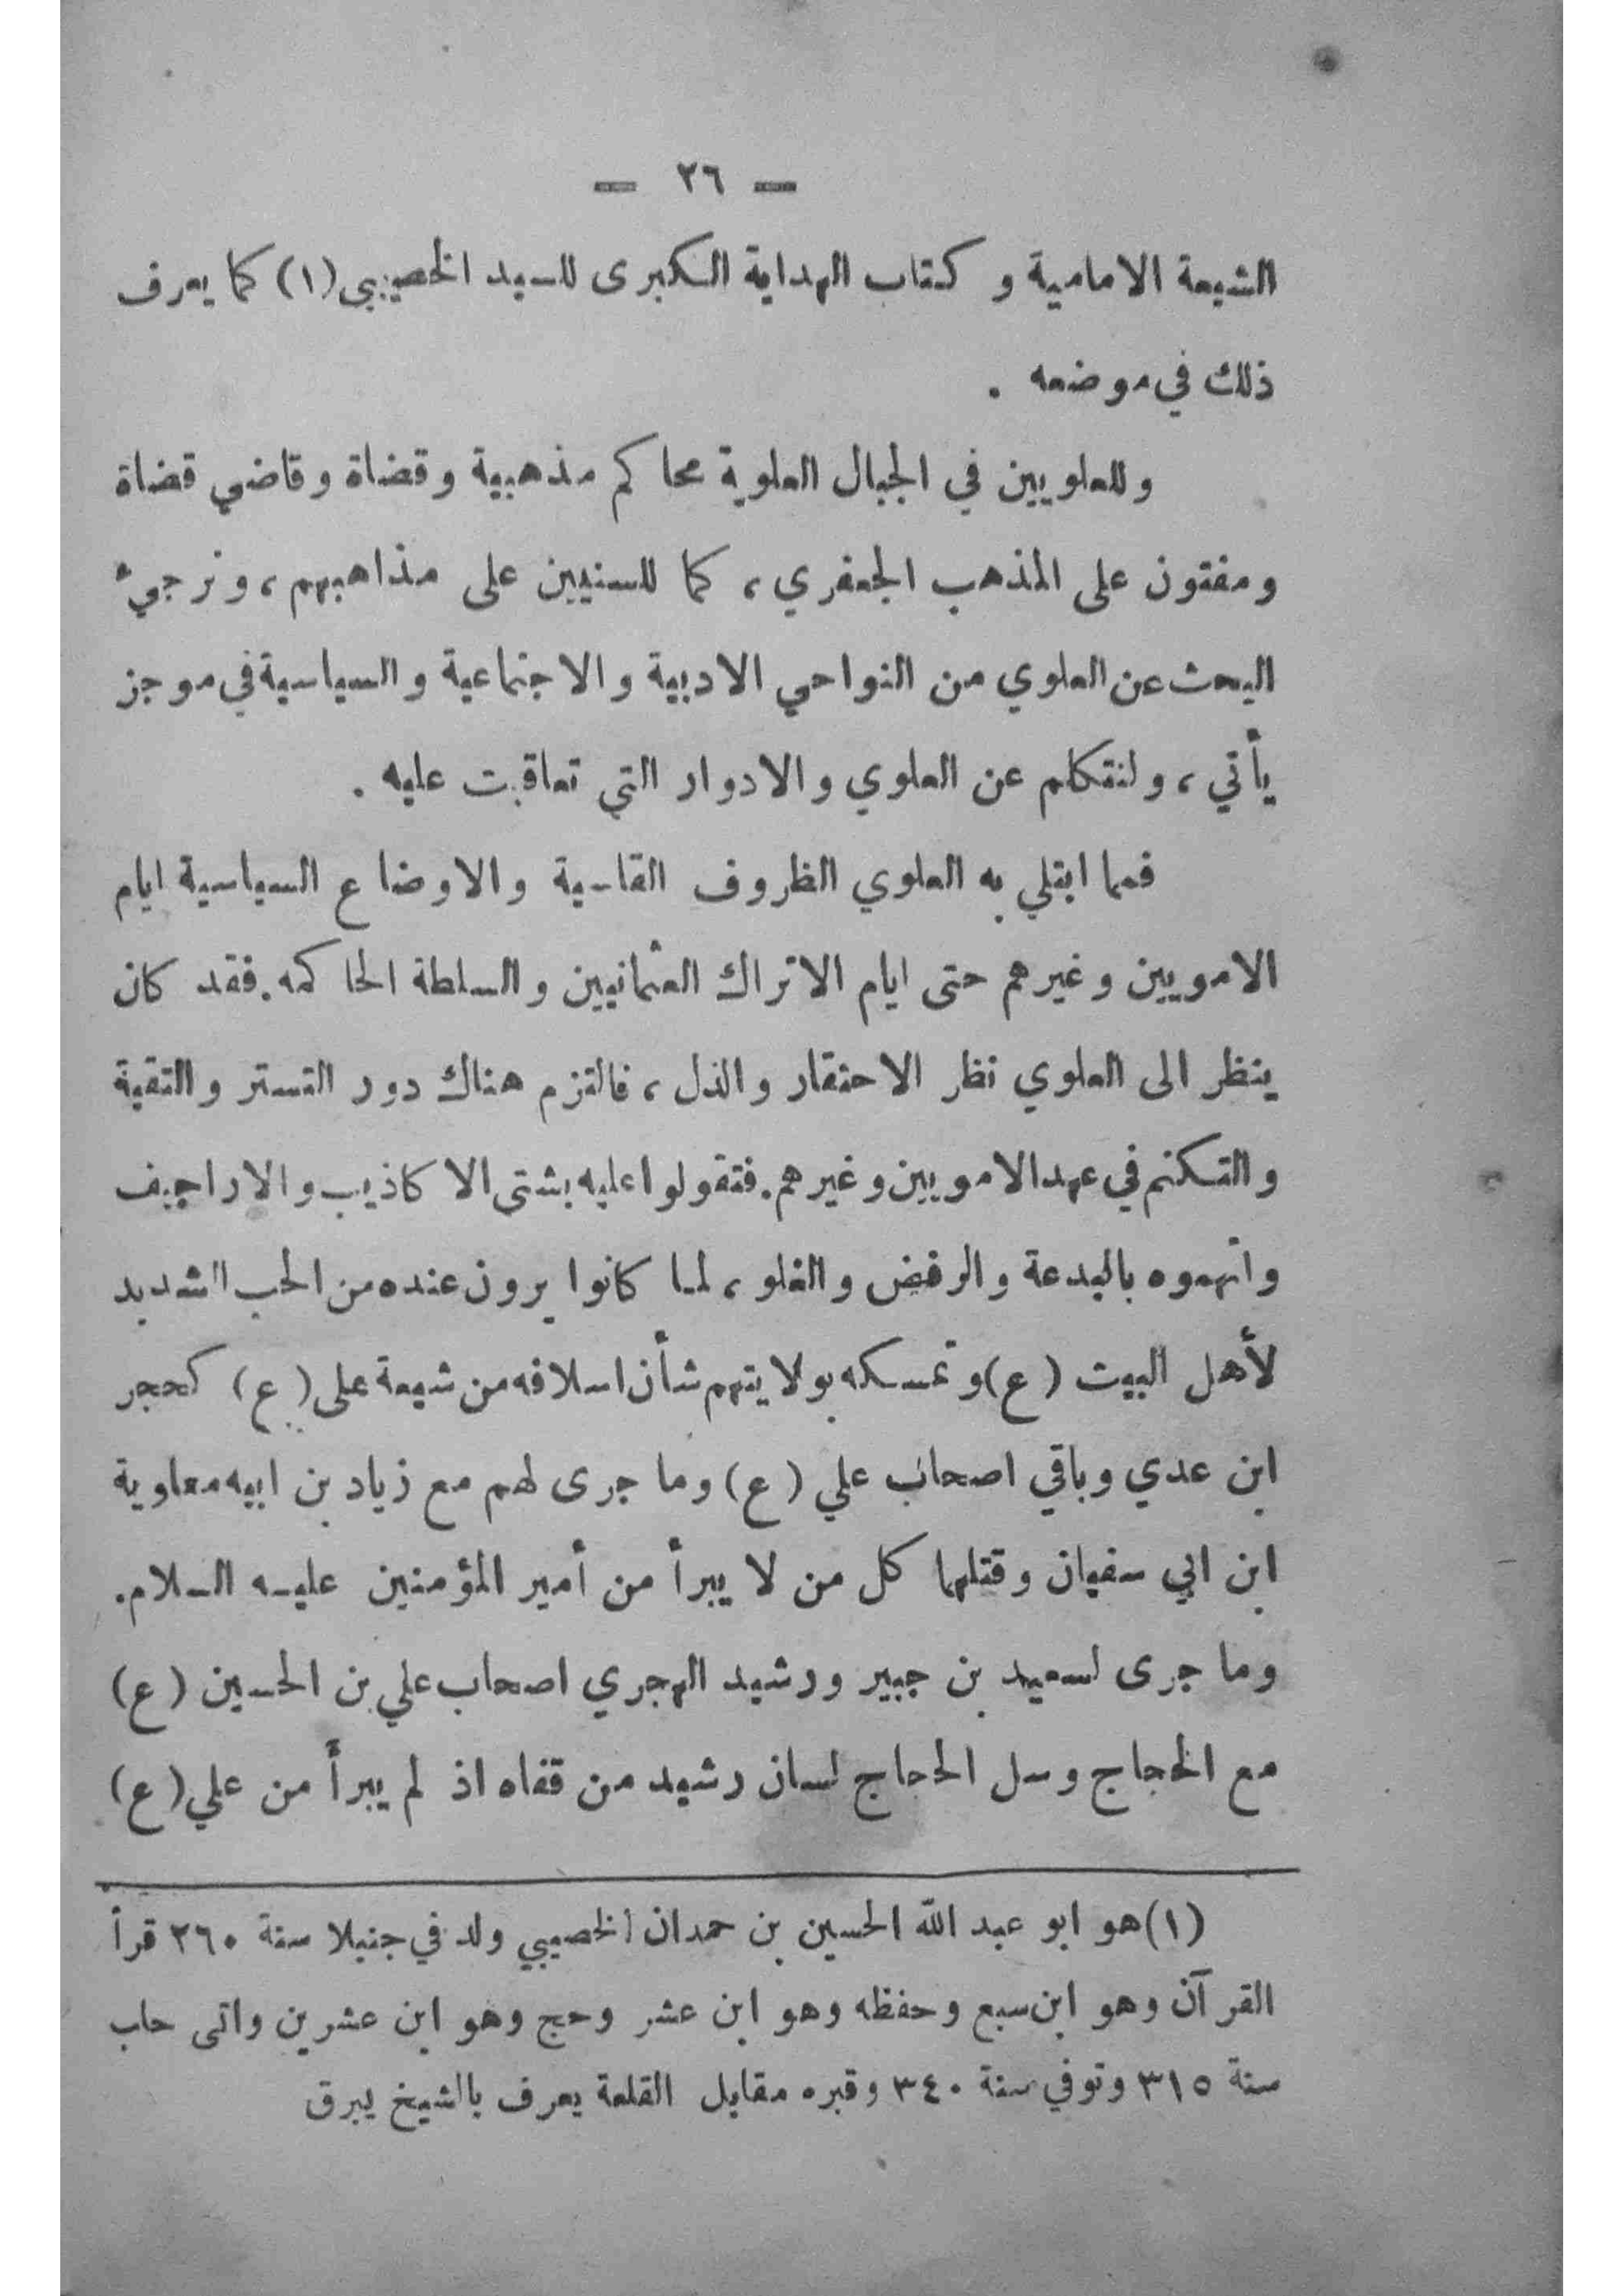 — ٢٦ —
الشيعة الامامية و كتاب الهداية الكبرى للسيد الخصيبي (١) كما يعرف
ذلك في موضعه .
وللعلويين في الجبال العلوية محاكم مذهبية وقضاة وقاضي قضاة
ومفتون على المذهب الجعفري ، كما للسنيين على مذاهبهم ، ونرجيء
البحث عن العلوي من النواحي الادبية والاجتماعية والسياسية في موجز
يأتي ، ولنتكلم عن العلوي والادوار التي تعاقبت عليه .
فمما ابتلي به العلوي الظروف القاسية والاوضاع السياسية ايام
الامويين وغيرهم حتى ايام الاتراك العثمانيين والسلطة الحاكمه . فقد كان
ينظر الى العلوي نظر الاحتقار والذل ، فالتزم هناك دور التستر والتقية
والتكتم في عهد الامويين وغيرهم . فتقولوا عليه بشتى الاكاذيب والاراجيف
واتهموه بالبدعة والرفض والغلو ، لما كانوا يرون عنده من الحب الشديد
لأهل البيت (ع) وتمسكه بولايتهم شأن اسلافه من شيعة على (ع) كحجر
ابن عدي وباقي اصحاب علي (ع) وما جرى لهم مع زياد بن ابيه معاوية
ابن ابي سفيان وقتلهما كل من لا يبرأ من أمير المؤمنين عليه السلام .
وما جرى لسعيد بن جبير ورشيد الهجري اصحاب علي بن الحسين (ع)
مع الحجاج وسل الحجاج لسان رشيد من قفاه اذ لم يبرأ من علي (ع)
(١) هو ابو عبد الله الحسين بن حمدان الخصيبي ولد في جنبلا سنة ٢٦٠ قرأ
القرآن وهو ابن سبع وحفظه وهو ابن عشر وحج وهو ابن عشرين واتى حلب
سنة ٣١٥ وتوفي سنة ٣٤٠ وقبره مقابل القلعة يعرف بالشيخ يبرق